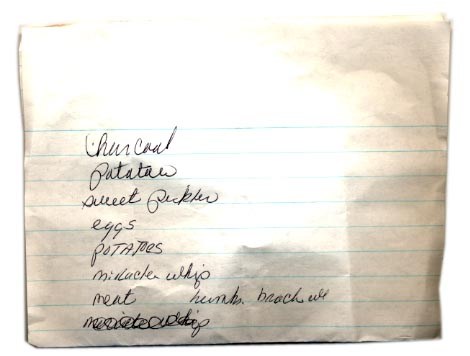 charcoal
potatoes
sweet pickles
eggs
POTATOES
miracle whip
meat